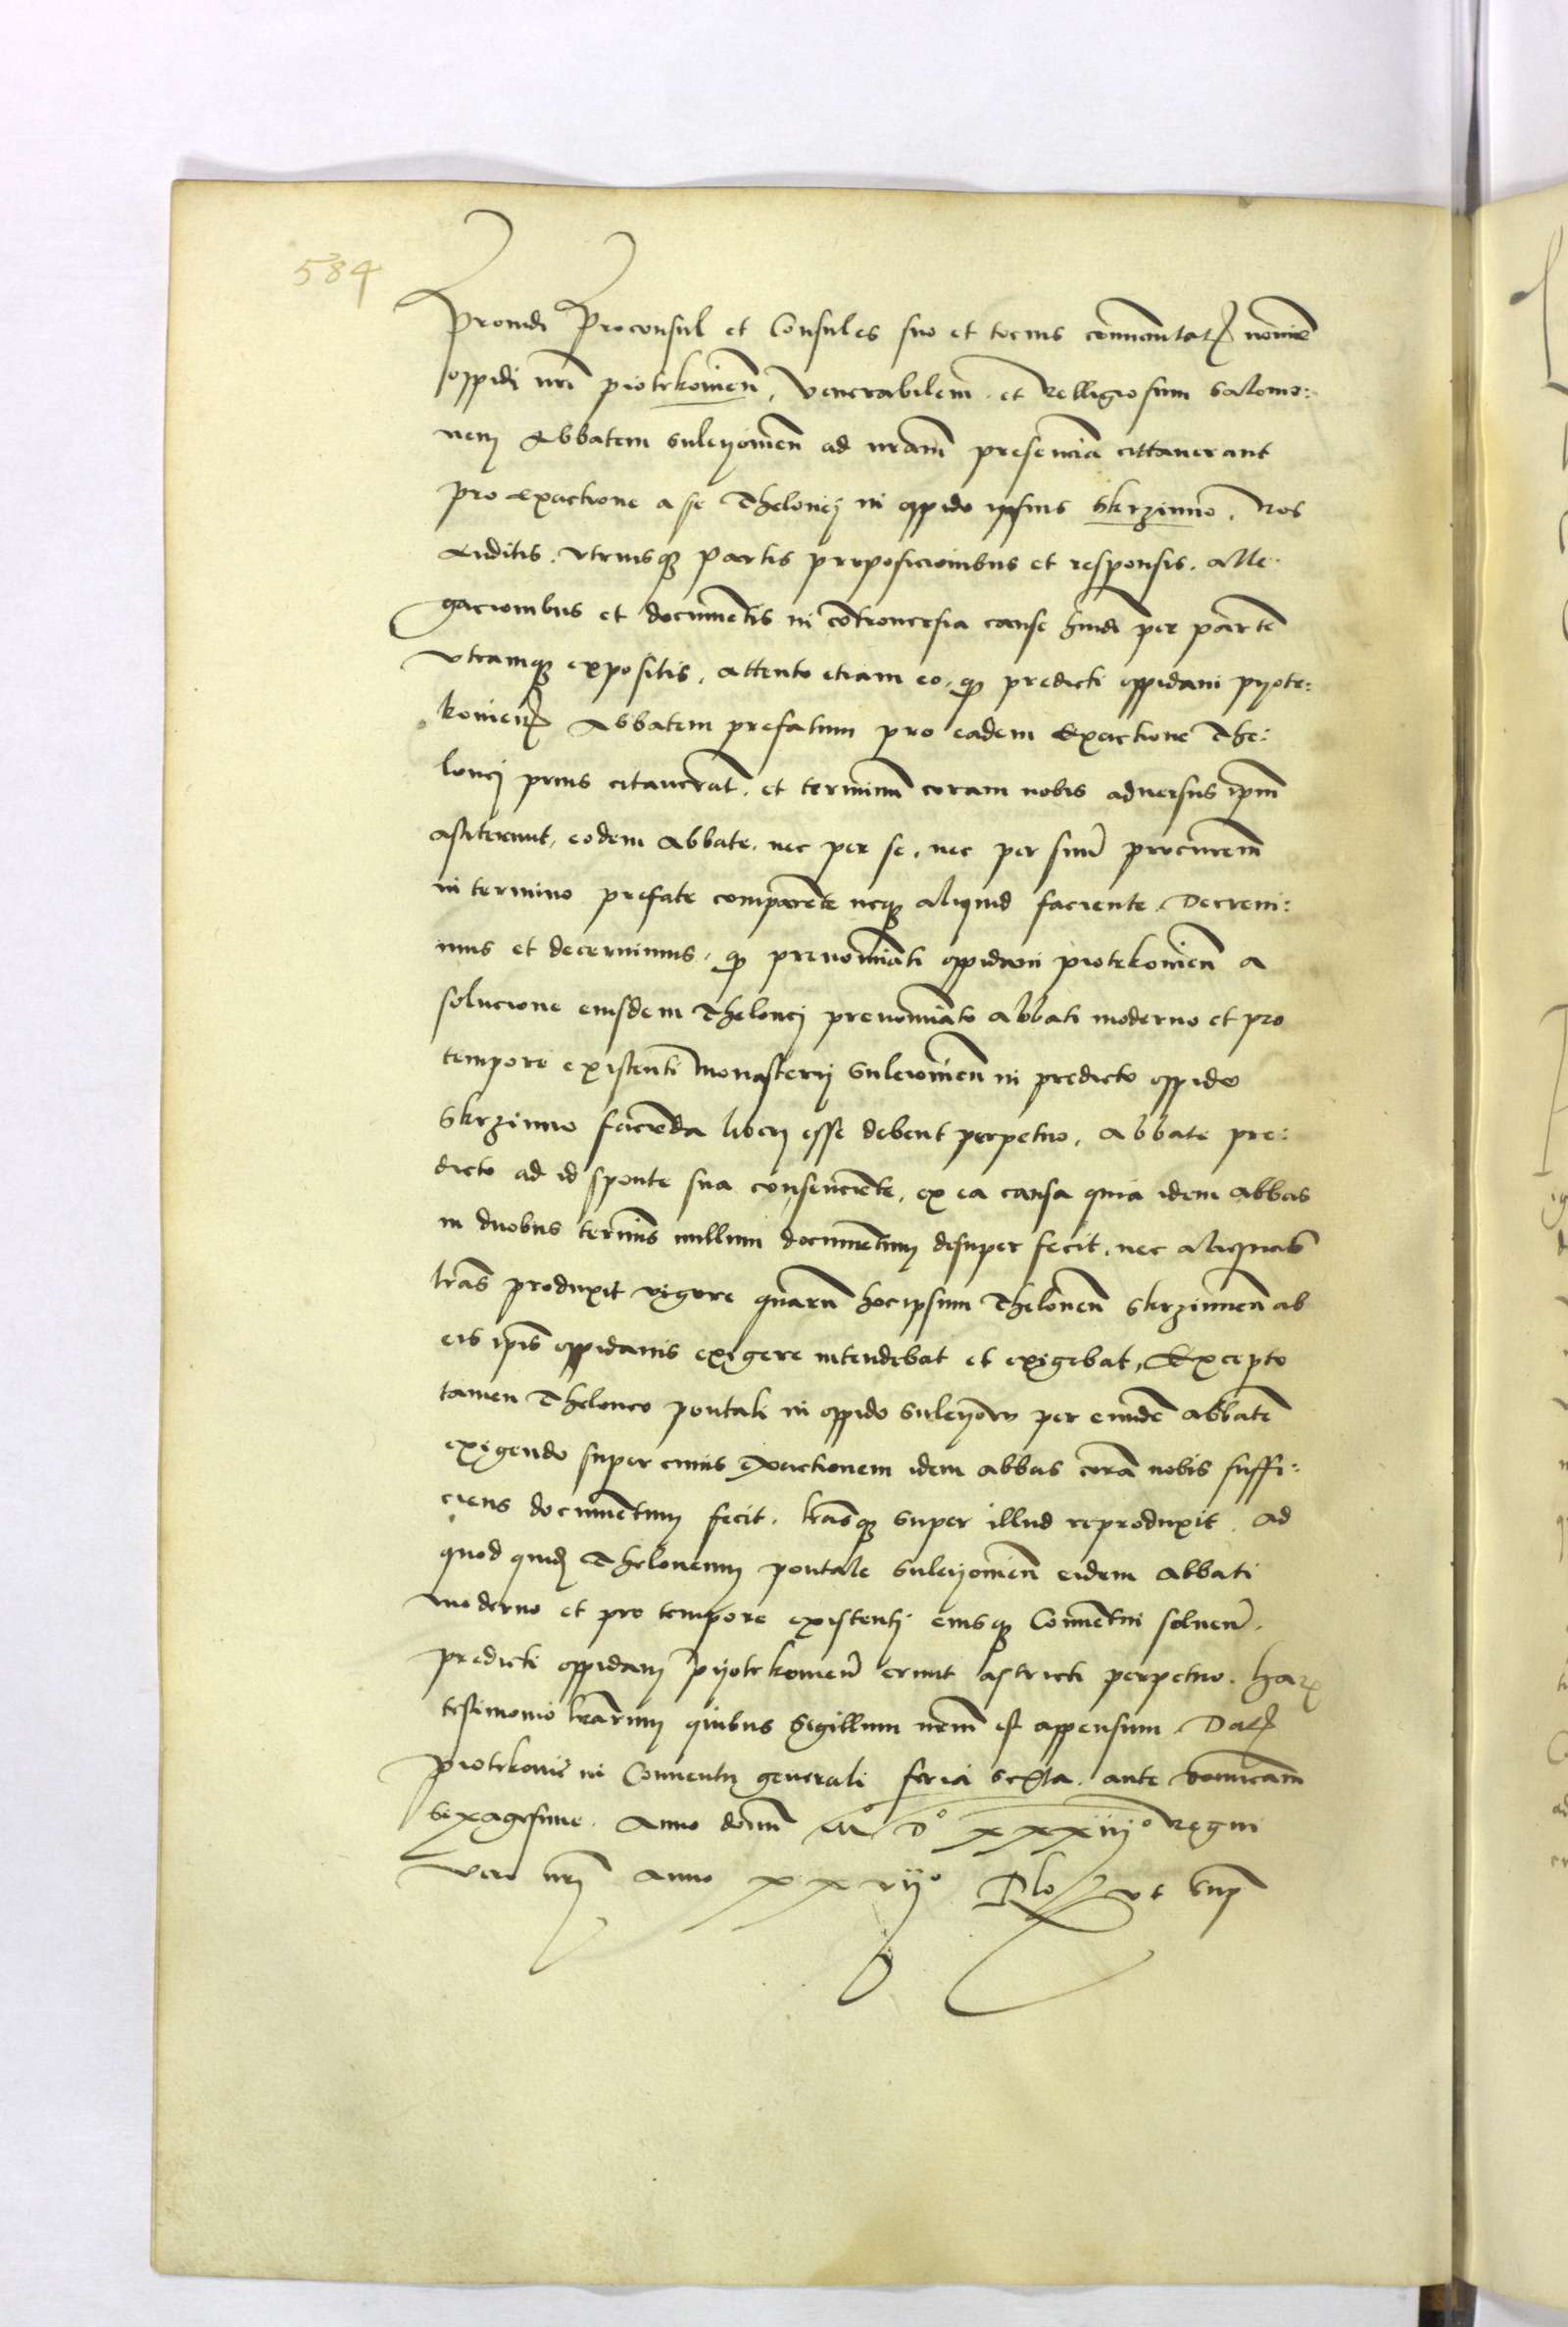 584
Prouidi Proconsul et Consules suo et tocius com̄unitatꝭ nomīe
oppidi nr̄i piotrkouien̄, Venerabilem et Relligiosum Salomo:
nem Abbatem Suleyouien̄ ad nram̄ presenciā cittauerant
pro exactione a se Thelonei in oppido ipsius Skrzinno, Nos
Auditis Vtriusqꝫ Partis proposicionibus et responsis, alle
gacionibus et documētis in cōtrouersia cause hmōi per partē
Vtramqꝫ expositis, attento etiam eo, qꝫ predicti oppidani pyotr:
kouienꝭ Abbatem prefatum pro eadem Exactione The:
lonei prius citauerāt, et terminū coram nobis aduersus ip̄m
astiterunt, eodem Abbate, nec per se, nec per suū procurem̄
in termino prefate comparēte neqꝫ aliquid faciente Decreui:
mus et decernimus, qꝫ prenomīati oppidani piotrkouien̄ a
solucione eiusdem Thelonei prenomīato Abbati moderno et pro
tempore existenti Monasterij Suleiouien̄ in predicto oppido
Skrzinno faciēda liberi esse debent perpetuo, Abbate pre:
dicto ad id sponte sua consenciēte, ex ea causa quia idem Abbas
in duobus terminis nullum documentum desuper fecit, nec aliquas
lr̄as produxit vigore quarū hoc ipsum Theloneū Skrzinnen̄ ab
eis ip̄is oppidanis exigere intendebat et exigebat, Excepto
tamen Theloneo pontali in oppido Suleyow per eundē abbatē
exigendo super cuius exactionem idem abbas corā nobis suffi:
ciens documentum fecit, lr̄asqꝫ super illud reproduxit, Ad
quod quidē Theloneum pontale Suleyouien̄ eidem Abbati
moderno et pro tempore existenti eiusqꝫ Conuentui soluen̄
predicti oppidani pyotrkouien̄ erunt astricti perpetuo. Harꝝ
testimonio lr̄arum quibus Sigillum nrm̄ est appensum Datꝭ
Piotrkouie in Conuentu generali feria sexta ante dominicam̄
Sexagesime Anno domī Mº Dº xxxiijº Regni
Vero nr̄j anno xxvijº Rło vt supꝭ